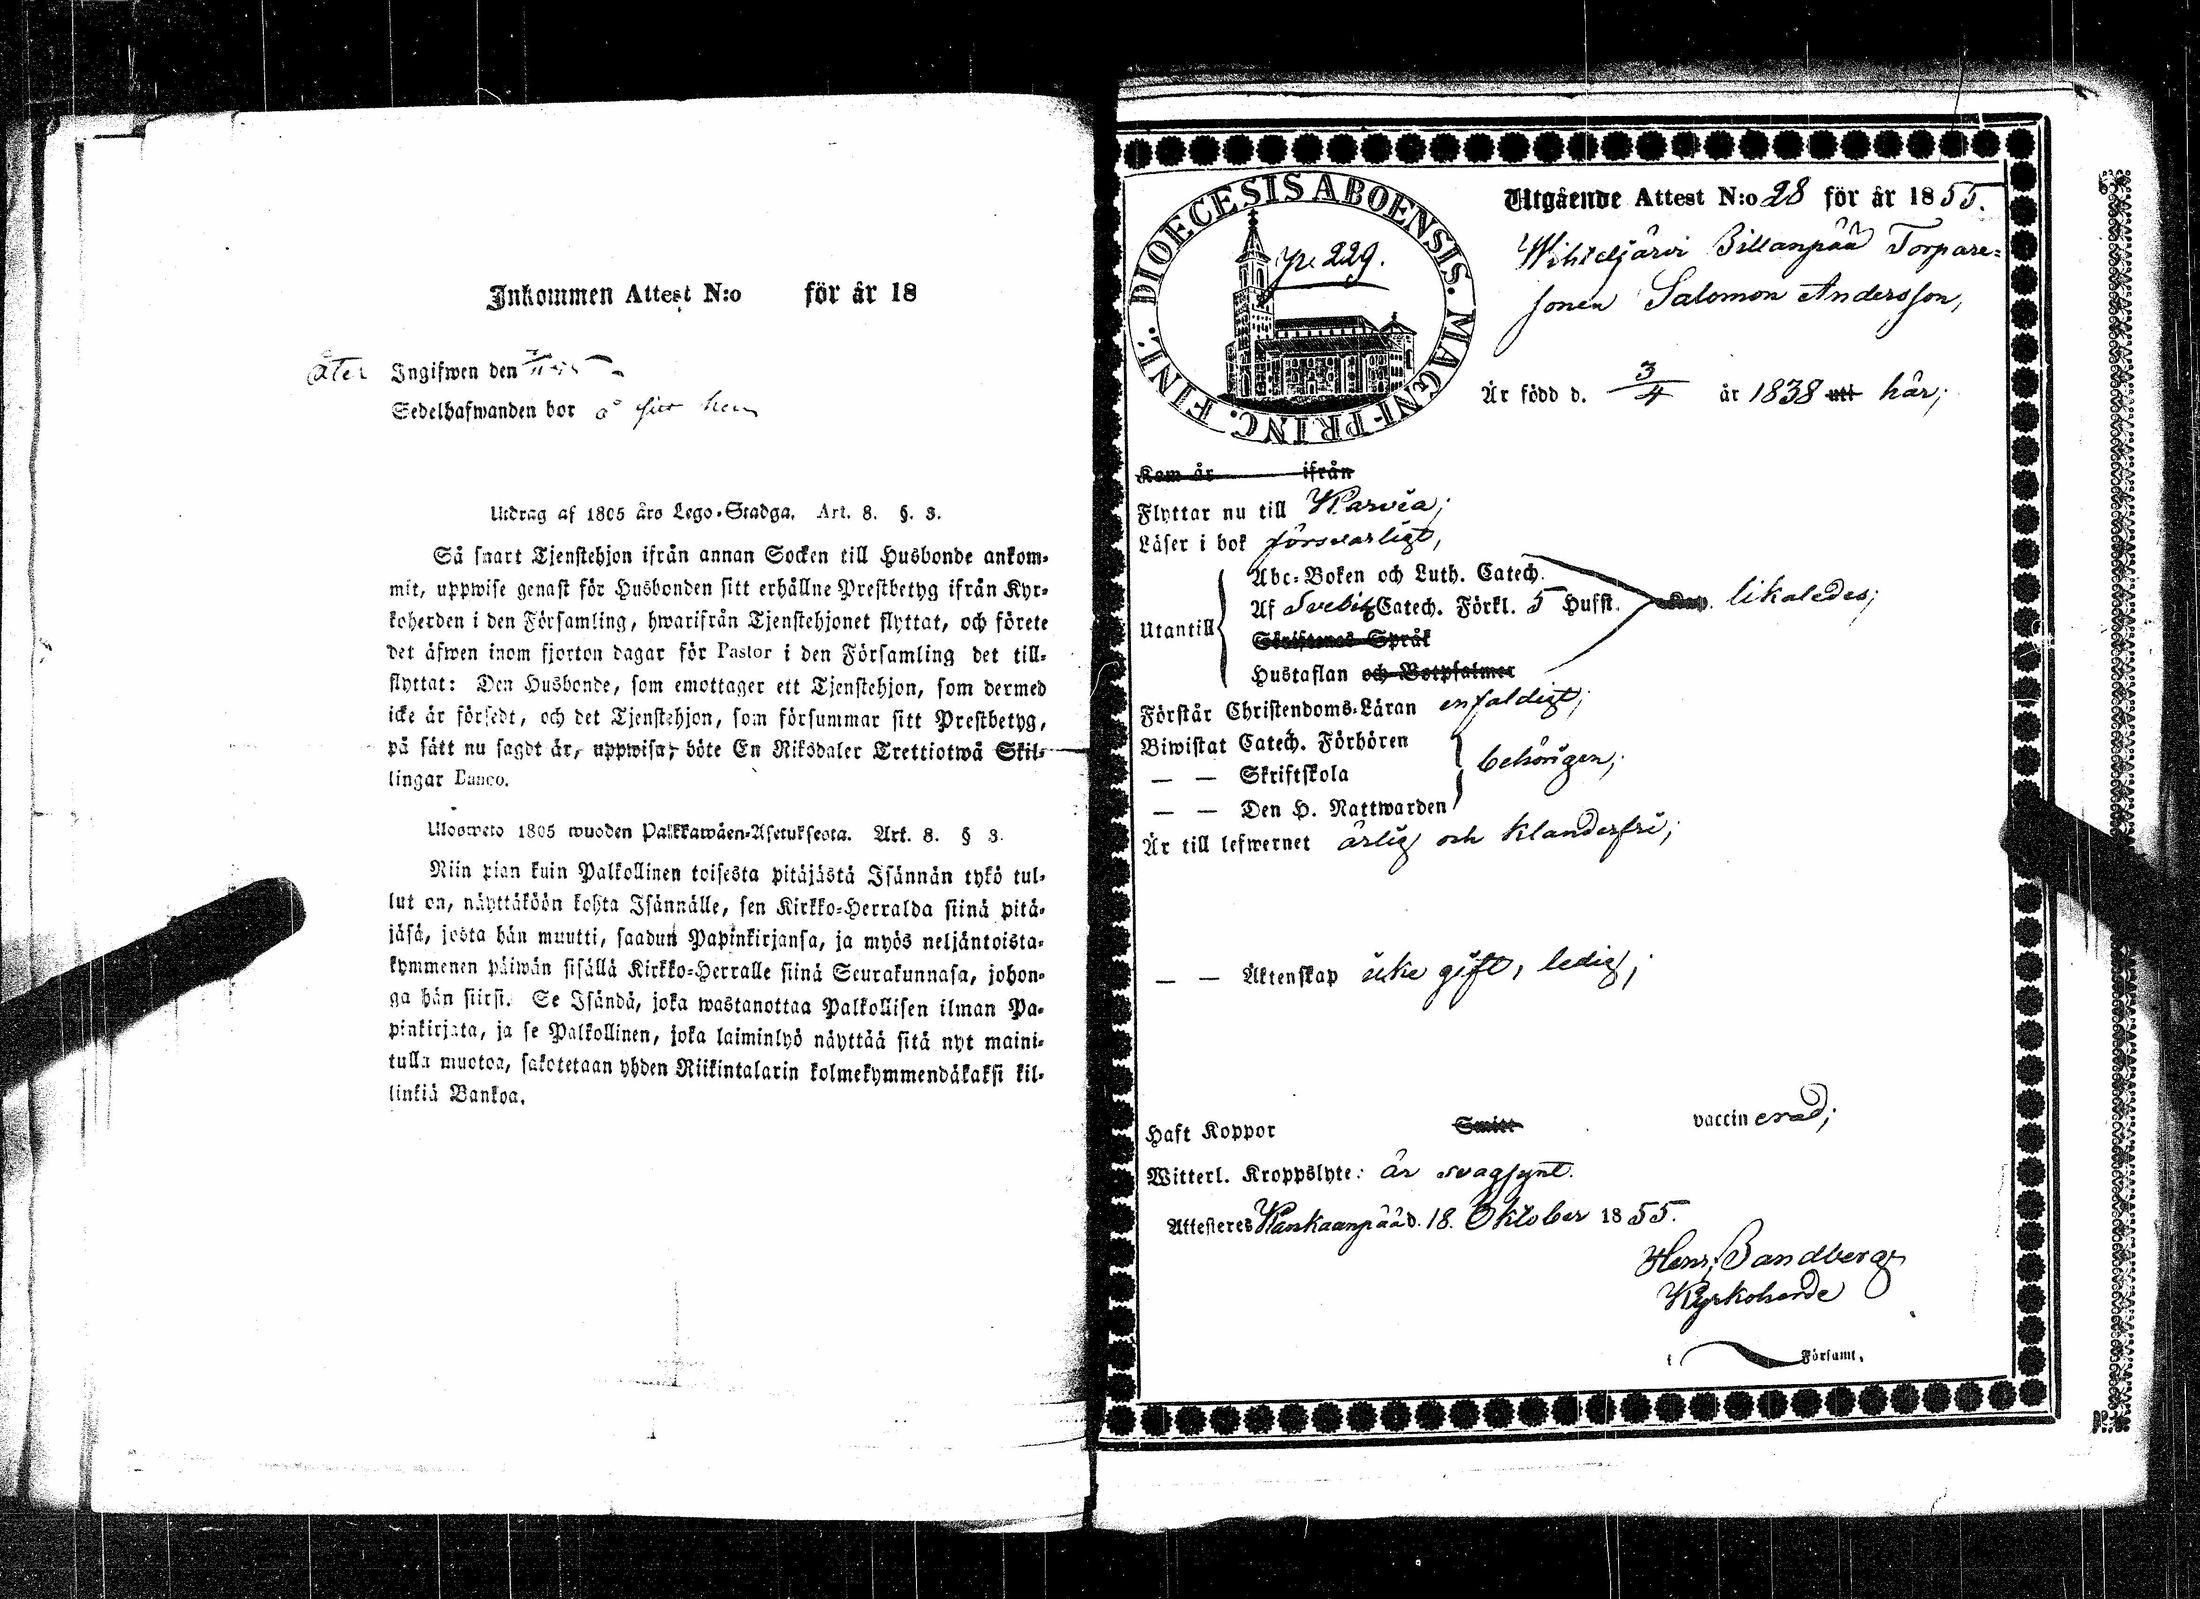 Inkommen Attest N:o för år 18
åter Ingifwen den
Sedelhafwanden bor å sitt hem
Utdrag af 1805 års Lego-Stadga. Art. 8. §. 3.
Så snart Tjenstehjon ifrån annan Socken till Husbonde ankom-
mit, uppwise genast för Husbonden sitt erhållne Prestbetyg ifrån Kyr-
koherden i den Församling, hwarifrån Tjenstehjonet flyttat, och förete
det äfwen inom fjorton dagar för Pastor i den Församling det till-
flyttat: Den Husbonde, som emottager ett Tjenstehjon, som dermed
icke är försedt, och det Tjenstehjon, som försummar sitt Prestbetyg,
på sätt nu sagdt är, uppwisa, böte En Riksdaler Trettiotwå Skil-
lingar Banco.
Ulosweto 1805 wuoden Palkkawäen-Asetuksesta. Art. 8. § 3.
Niin pian kuin Palkollinen toisesta pitäjästä Isännän tykö tul-
lut on, näyttäköön kohta Isännälle, sen Kirkko-Herralda siinä pitä-
jäsä, josta hän muutti, saadun Papinkirjansa, ja myös neljäntoista-
kymmenen päiwän sisällä Kirkko-Herralle siinä Seurakunnasa, johon-
ga hän siirsi. Se Isändä, joka wastanottaa Palkollisen ilman Pa-
pinkirjata, ja se Palkollinen, joka laiminlyö näyttää sitä nyt maini-
tulla muotoa, sakotetaan yhden Riikintalarin kolmekymmendäkaksi kil-
linkiä Bankoa.
DIOECESIS ABOENSIS. MAGNI-PRINC. FINL.
229.
Utgående Attest N:o 28 för år 1855.
Wihteljärvi Sillanpää Torpare-
sonen Salomon Andersson,
Är född d. 3/4 år 1838 uti här;
Kom år ifrån
Flyttar nu till Karvia;
Läser i bok försvarligt,
Abc-Boken och Luth. Catech.
Af Svebil Catech. Förkl. 5 Hufst. likaledes;
Utantill
Skriftenes Språk
Hustaflan och Botpsalmer
Förstår Christendoms-Läran enfaldigt;
Biwistat Catech. Förhören
— — Skriftskola behörigen;
— — Den H. Nattwarden
Är till lefwernet ärlig och klanderfri;
— — Äktenskap icke gift, ledig;
Haft Koppor Smitt vaccinerad;
Witterl. Kroppslyte: är svagsynt.
Attesteres Kankaanpää d. 18. Oktober 1855.
Henr. Sandberg
Kyrkoherde
i Församl.